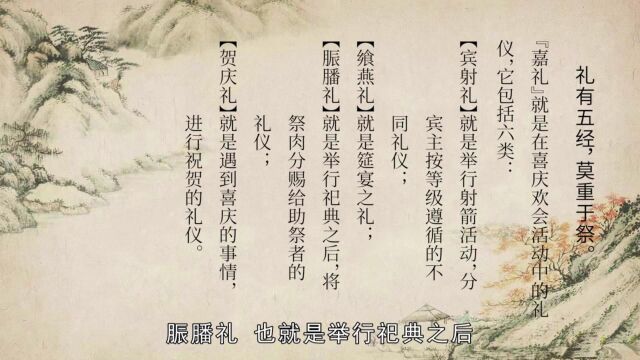 礼有五经，莫重于祭。
『嘉礼』就是在喜庆欢会活动中的礼
仪，它包括六类：
【宾射礼】就是举行射箭活动，分
宾主按等级遵循的不
同礼仪；
【飨燕礼】就是筵宴之礼；
【脤膰礼】就是举行祀典之后，将
祭肉分赐给助祭者的
礼仪；
【贺庆礼】就是遇到喜庆的事情，
进行祝贺的礼仪。
脤膰礼 也就是举行祀典之后